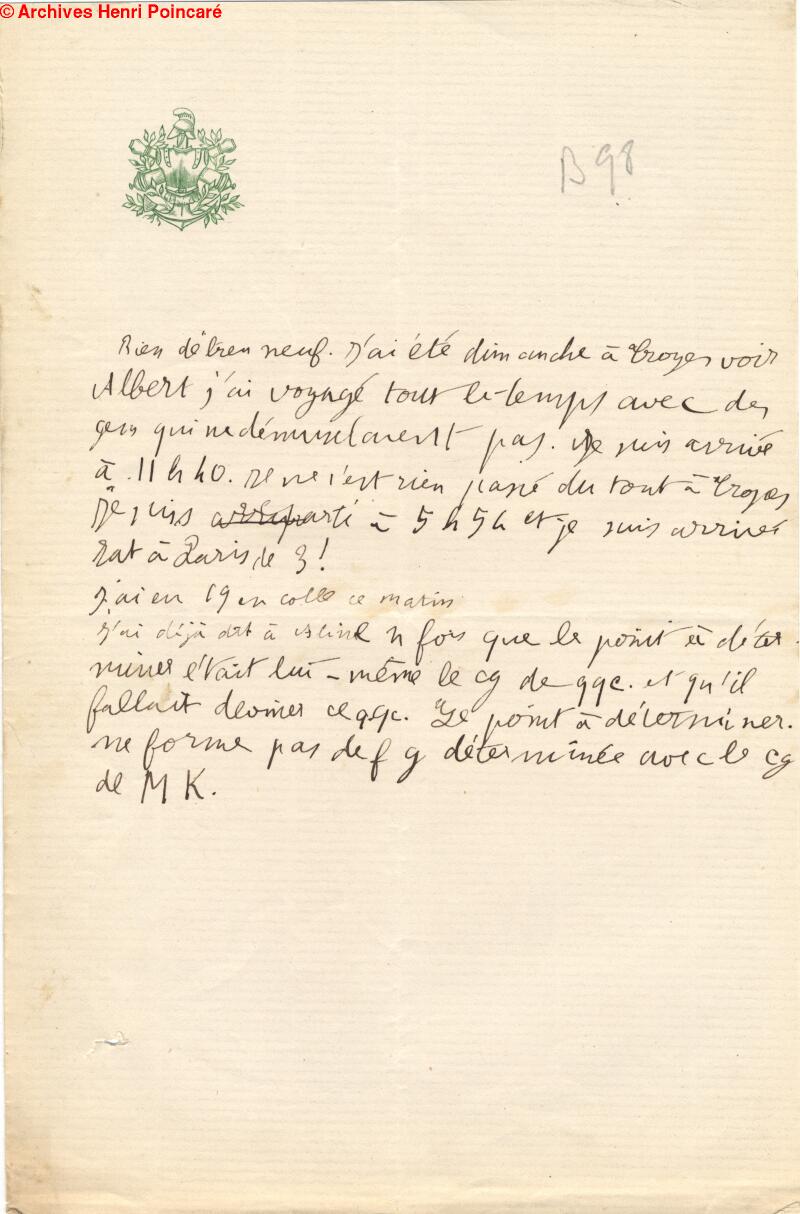 © Archives Henri Poincaré
B 98
Rien de bien neuf. J'ai été dimanche à Troyes voir
Albert j'ai voyagé tout le temps avec des
gens qui ne démuselaient pas. Je suis arrivé
à 11 h 40. Il ne s'est rien passé du tout à Troyes
Je suis reparti à 5 h 54 et je suis arrivé
rat à Paris de 3!
J'ai eu 19 en colle ce matin
J'ai déjà dit à Aline n fois que le point à déter-
miner était lui-même le cg de qqc. et qu'il
fallait deviner ce qqc. Le point à déterminer.
ne forme pas de f g déterminée avec le cg
de M K.